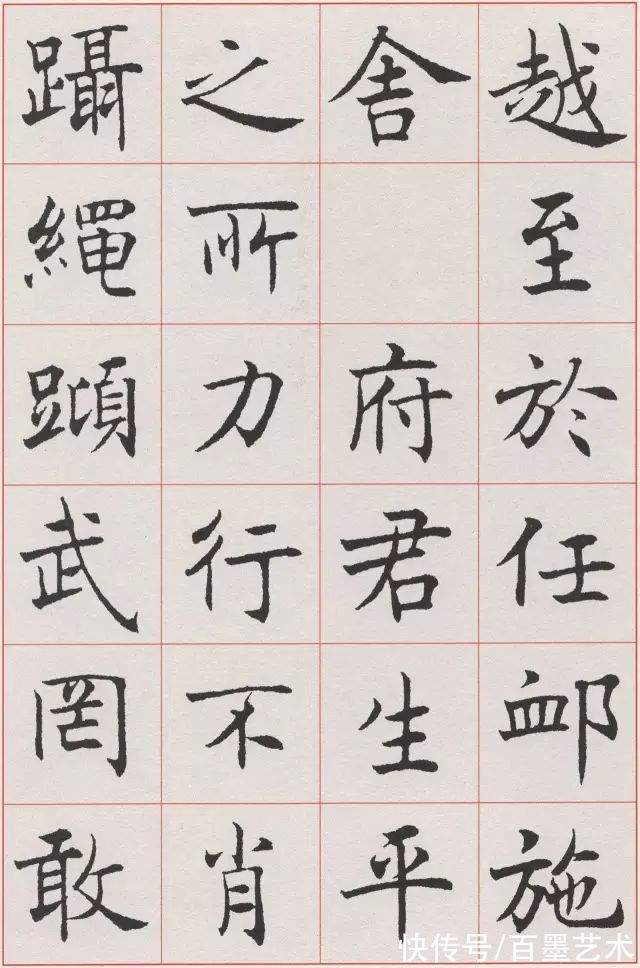 越至於任卹施
舍 府君生平
之所力行不肖
躡繩蹞武罔敢
快传号/百墨艺术